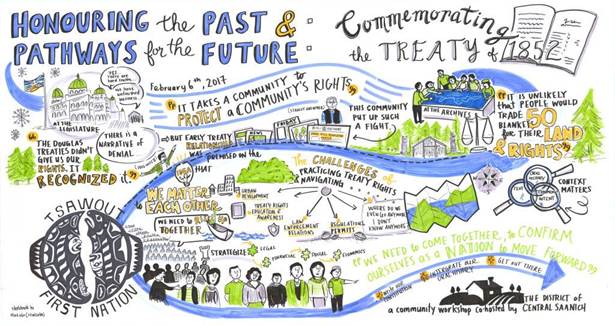 HONOURING the PAST &
PATHWAYS for the FUTURE :
Commemorating
the TREATY of 1852
February 6th, 2017
"IT TAKES A COMMUNITY to
PROTECT a COMMUNITY'S RIGHTS"
THIS COMMUNITY
PUT UP SUCH
A FIGHT
AT the ARCHIVES
"IT IS UNLIKELY
that PEOPLE WOULD
TRADE 50
BLANKETS
for THEIR LAND
& RIGHTS"
AT the
LEGISLATURE
"THE DOUGLAS
TREATIES DIDN'T
GIVE US OUR
RIGHTS. IT
RECOGNIZED it"
THERE IS A
NARRATIVE of
DENIAL
BUT EARLY TREATY
RELATIONSHIP
WAS PREMISED on the
IDEA THAT
WE MATTER to
EACH OTHER
WE NEED to
TOGETHER
URBAN
DEVELOPMENT
TREATY RIGHTS
EDUCATION &
AWARENESS
The CHALLENGES of
PRACTICING TREATY RIGHTS
& NAVIGATING
LAW
ENFORCEMENT
RELATIONS
REGULATIONS
PERMITS
WHERE DO WE
EVEN GO ANYMORE
I DON'T
KNOW ANYMORE
TEXT
CONTEXT
MATTERS
TSAWOUT
FIRST NATION
STRATEGIZE
LEGAL
FINANCIAL
SOCIAL
ECONOMICS
"WE NEED to COME TOGETHER, to CONFIRM
OURSELVES as a NATION to MOVE FORWARD"
WRITE OUR
CONSTITUTION
INTEGRATE OUR
ORAL HISTORY
GET OUT THERE
a community workshop co-hosted by
THE DISTRICT OF
CENTRAL SAANICH